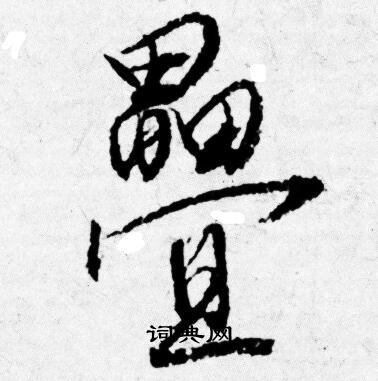 疊
词典网